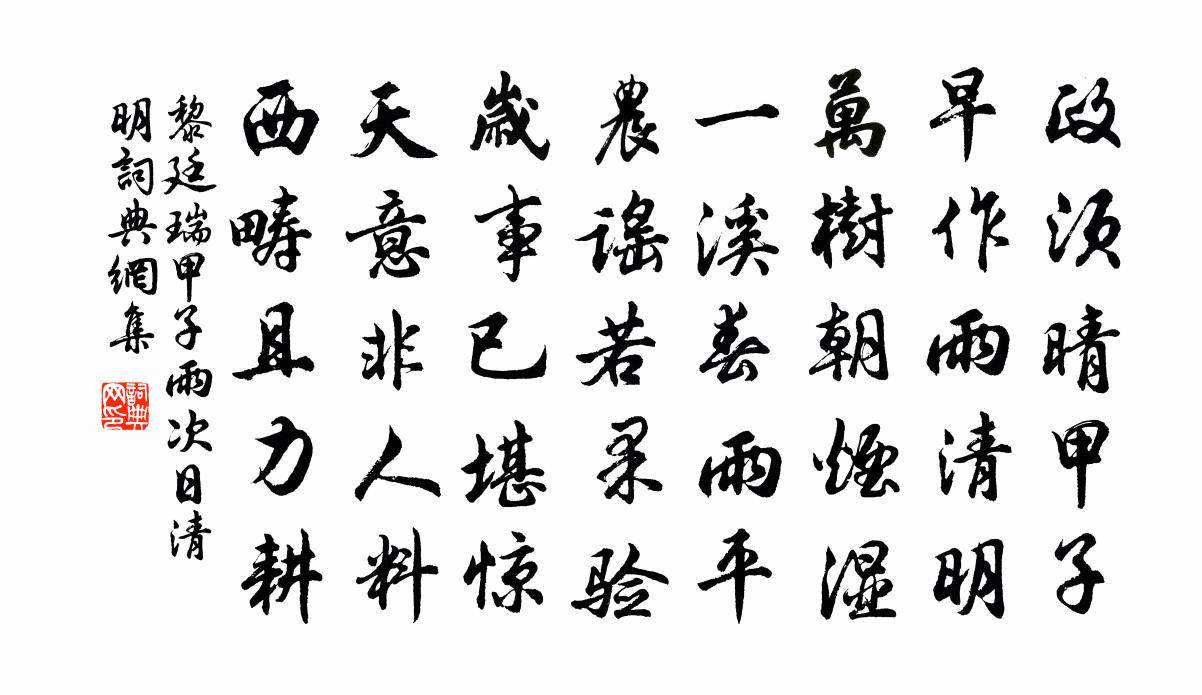 政须晴甲子
早作雨清明
萬樹朝煙湿
一溪春雨平
農谣若果验
歲事已堪惊
天意非人料
西疇且力耕
黎廷瑞甲子雨次日清
明詞典網集
詞典
网印